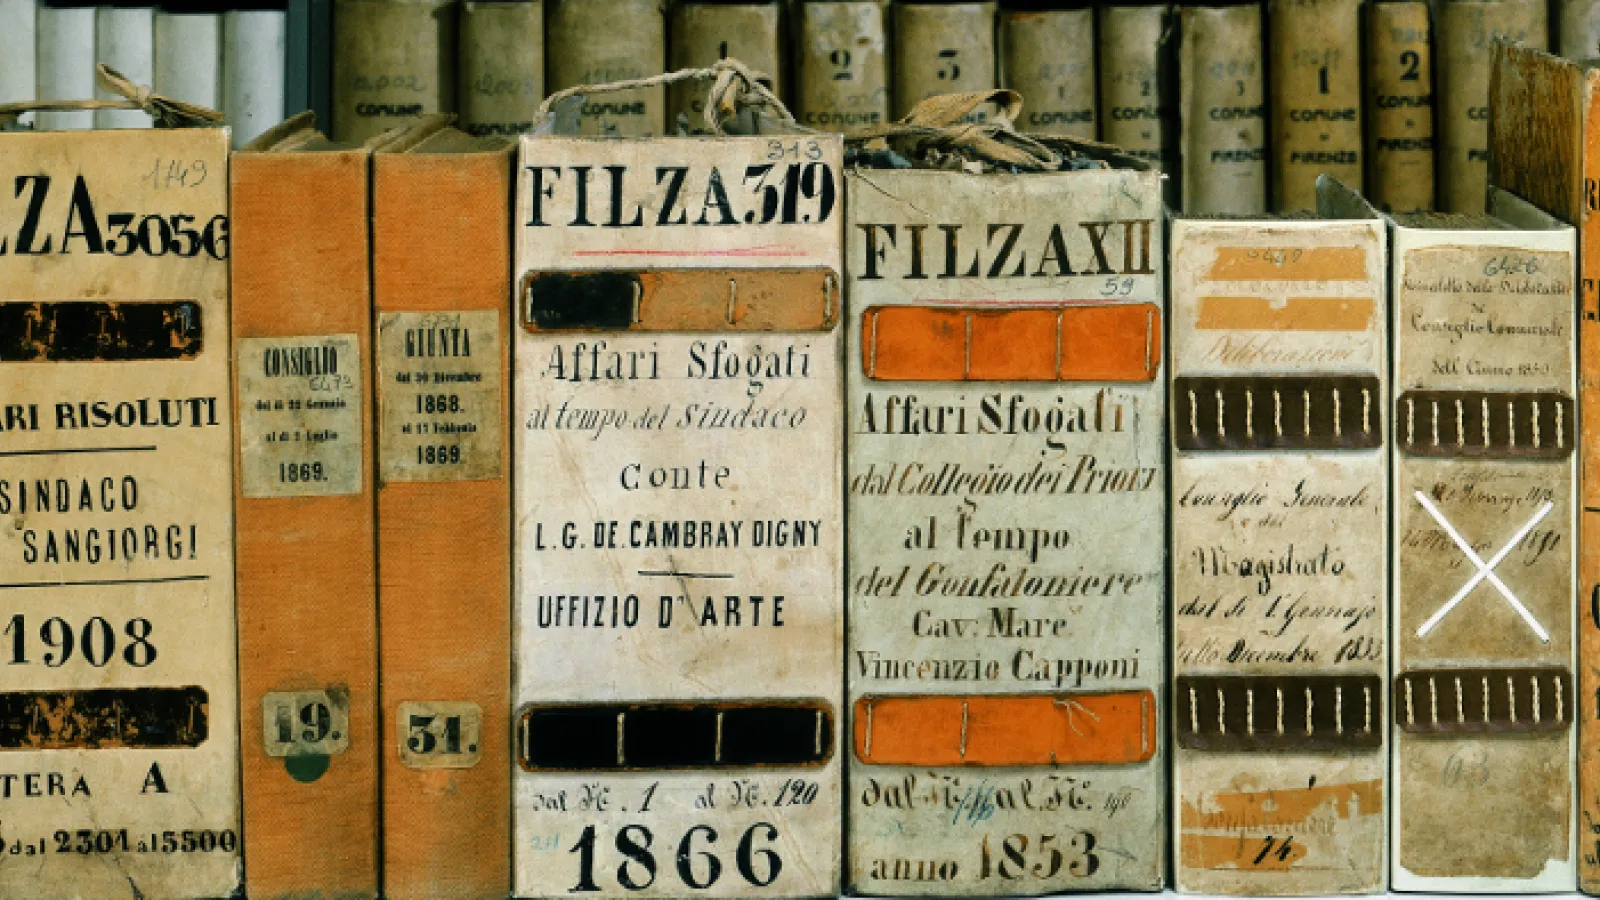 1749
LZA 3056
ARI RISOLUTI
SINDACO
SANGIORGI
1908
TERA A
dal 2301 al 5500
CONSIGLIO
6473
dal di 22 Gennaio
al di 2 Luglio
1869.
19.
GIUNTA
dal 30 Dicembre
1868.
al 17 Febbraio
1869.
31.
313
FILZA 319
Affari Sfogati
al tempo del Sindaco
Conte
L.G. DE. CAMBRAY DIGNY
UFFIZIO D'ARTE
dal N. 1 al N. 120
1866
FILZA XII
59
Affari Sfogati
dal Collegio dei Priori
al Tempo
del Gonfaloniere
Cav. Mare
Vincenzio Capponi
dal N. al N.
anno 1853
Deliberazioni
Consiglio Generale
del
Magistrato
dal di 1. Gennajo
Dicembre
74.
6426
delle Deliberazioni
del
Consiglio Comunale
dell'Anno
COMUNE
COMUNE
COMUNE
1
COMUNE
2
COMUNE
3
COMUNE
COMUNE
2
COMUNE
3
COMUNE
DI
FIRENZE
1
COMUNE
DI
FIRENZE
2
COMUNE
DI
FIRENZE